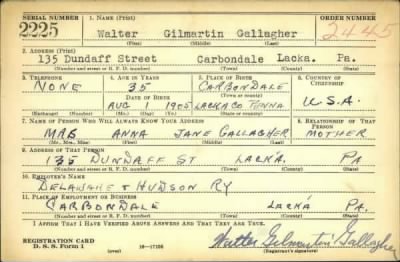 SERIAL NUMBER 1. NAME (Print) ORDER NUMBER
2225 Walter Gilmartin Gallagher 2445
(First) (Middle) (Last)
2. ADDRESS (Print)
135 Dundaff Street Carbondale Lacka. Pa.
(Number and street or R. F. D. number) (Town) (County) (State)
3. TELEPHONE 4. AGE IN YEARS 5. PLACE OF BIRTH 6. COUNTRY OF CITIZENSHIP
NONE 35 CARBONDALE
DATE OF BIRTH (Town or county)
AUG 1 1905 LACKA CO PENNA U.S.A.
(Exchange) (Number) (Mo.) (Day) (Yr.) (State or country)
7. NAME OF PERSON WHO WILL ALWAYS KNOW YOUR ADDRESS 8. RELATIONSHIP OF THAT PERSON
MRS ANNA JANE GALLAGHER MOTHER
(Mr., Mrs., Miss) (First) (Middle) (Last)
9. ADDRESS OF THAT PERSON
135 DUNDAFF ST LACKA. PA
(Number and street or R. F. D. number) (Town) (County) (State)
10. EMPLOYER'S NAME
DELAWARE + HUDSON RY
11. PLACE OF EMPLOYMENT OR BUSINESS
CARBONDALE LACKA PA.
(Number and street or R. F. D. number) (Town) (County) (State)
I AFFIRM THAT I HAVE VERIFIED ABOVE ANSWERS AND THAT THEY ARE TRUE.
REGISTRATION CARD
D. S. S. Form 1 (over) 16-17105 Walter Gilmartin Gallagher
(Registrant's signature)